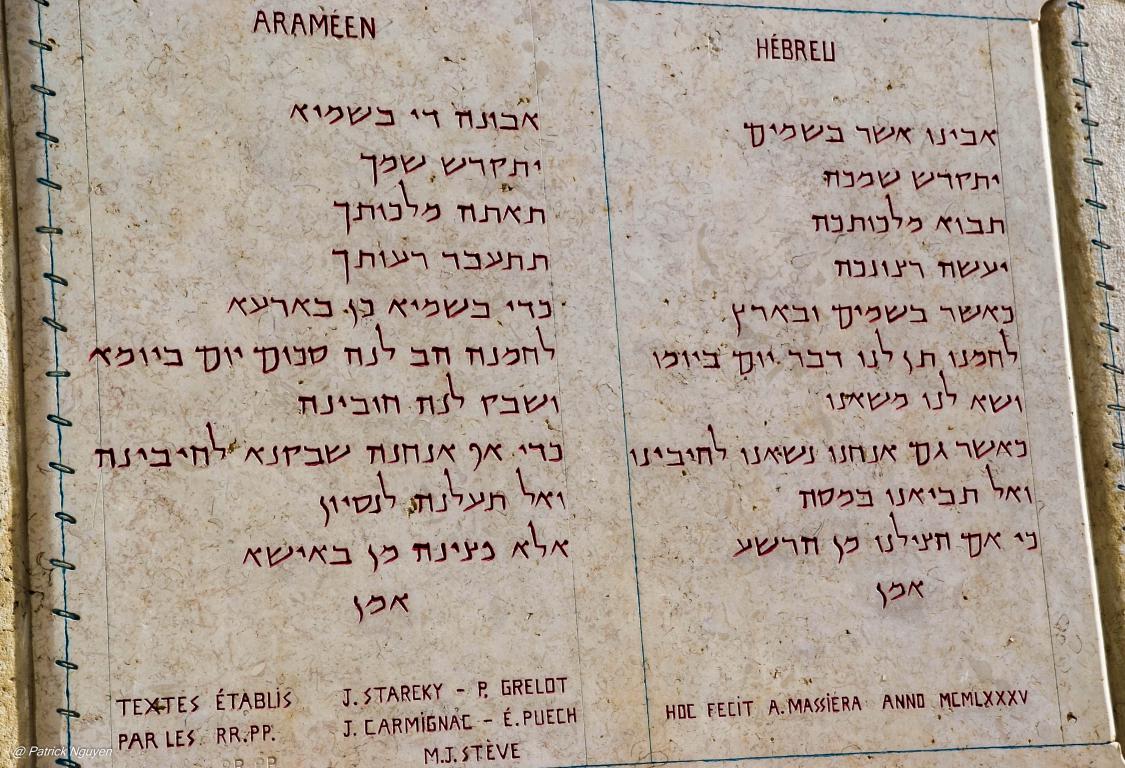 ARAMÉEN
אבונה די בשמיא
יתקדש שמך
תאתה מלכותך
תתעבד רעותך
כדי בשמיא כן בארעא
לחמנה הב לנה סכום יום ביומא
ושבק לנה חובינה
כדי אף אנחנה שבקנא לחיבינה
ואל תעלנה לנסיון
אלא פצינה מן באישא
אמן
HÉBREU
אבינו אשר בשמים
יתקדש שמכה
תבוא מלכותכה
יעשה רצונכה
כאשר בשמים ובארץ
לחמנו תן לנו דבר יום ביומו
ושא לנו משאנו
כאשר גם אנחנו נשאנו לחיבינו
ואל תביאנו במסה
כי אם הצילנו מן הרשע
אמן
TEXTES ÉTABLIS
PAR LES RR.PP.
J. STAREKY - P. GRELOT
J. CARMIGNAC - É. PUECH
M.J. STÈVE
HOC FECIT A. MASSIÉRA ANNO MCMLXXXV
@ Patrick Nguyen